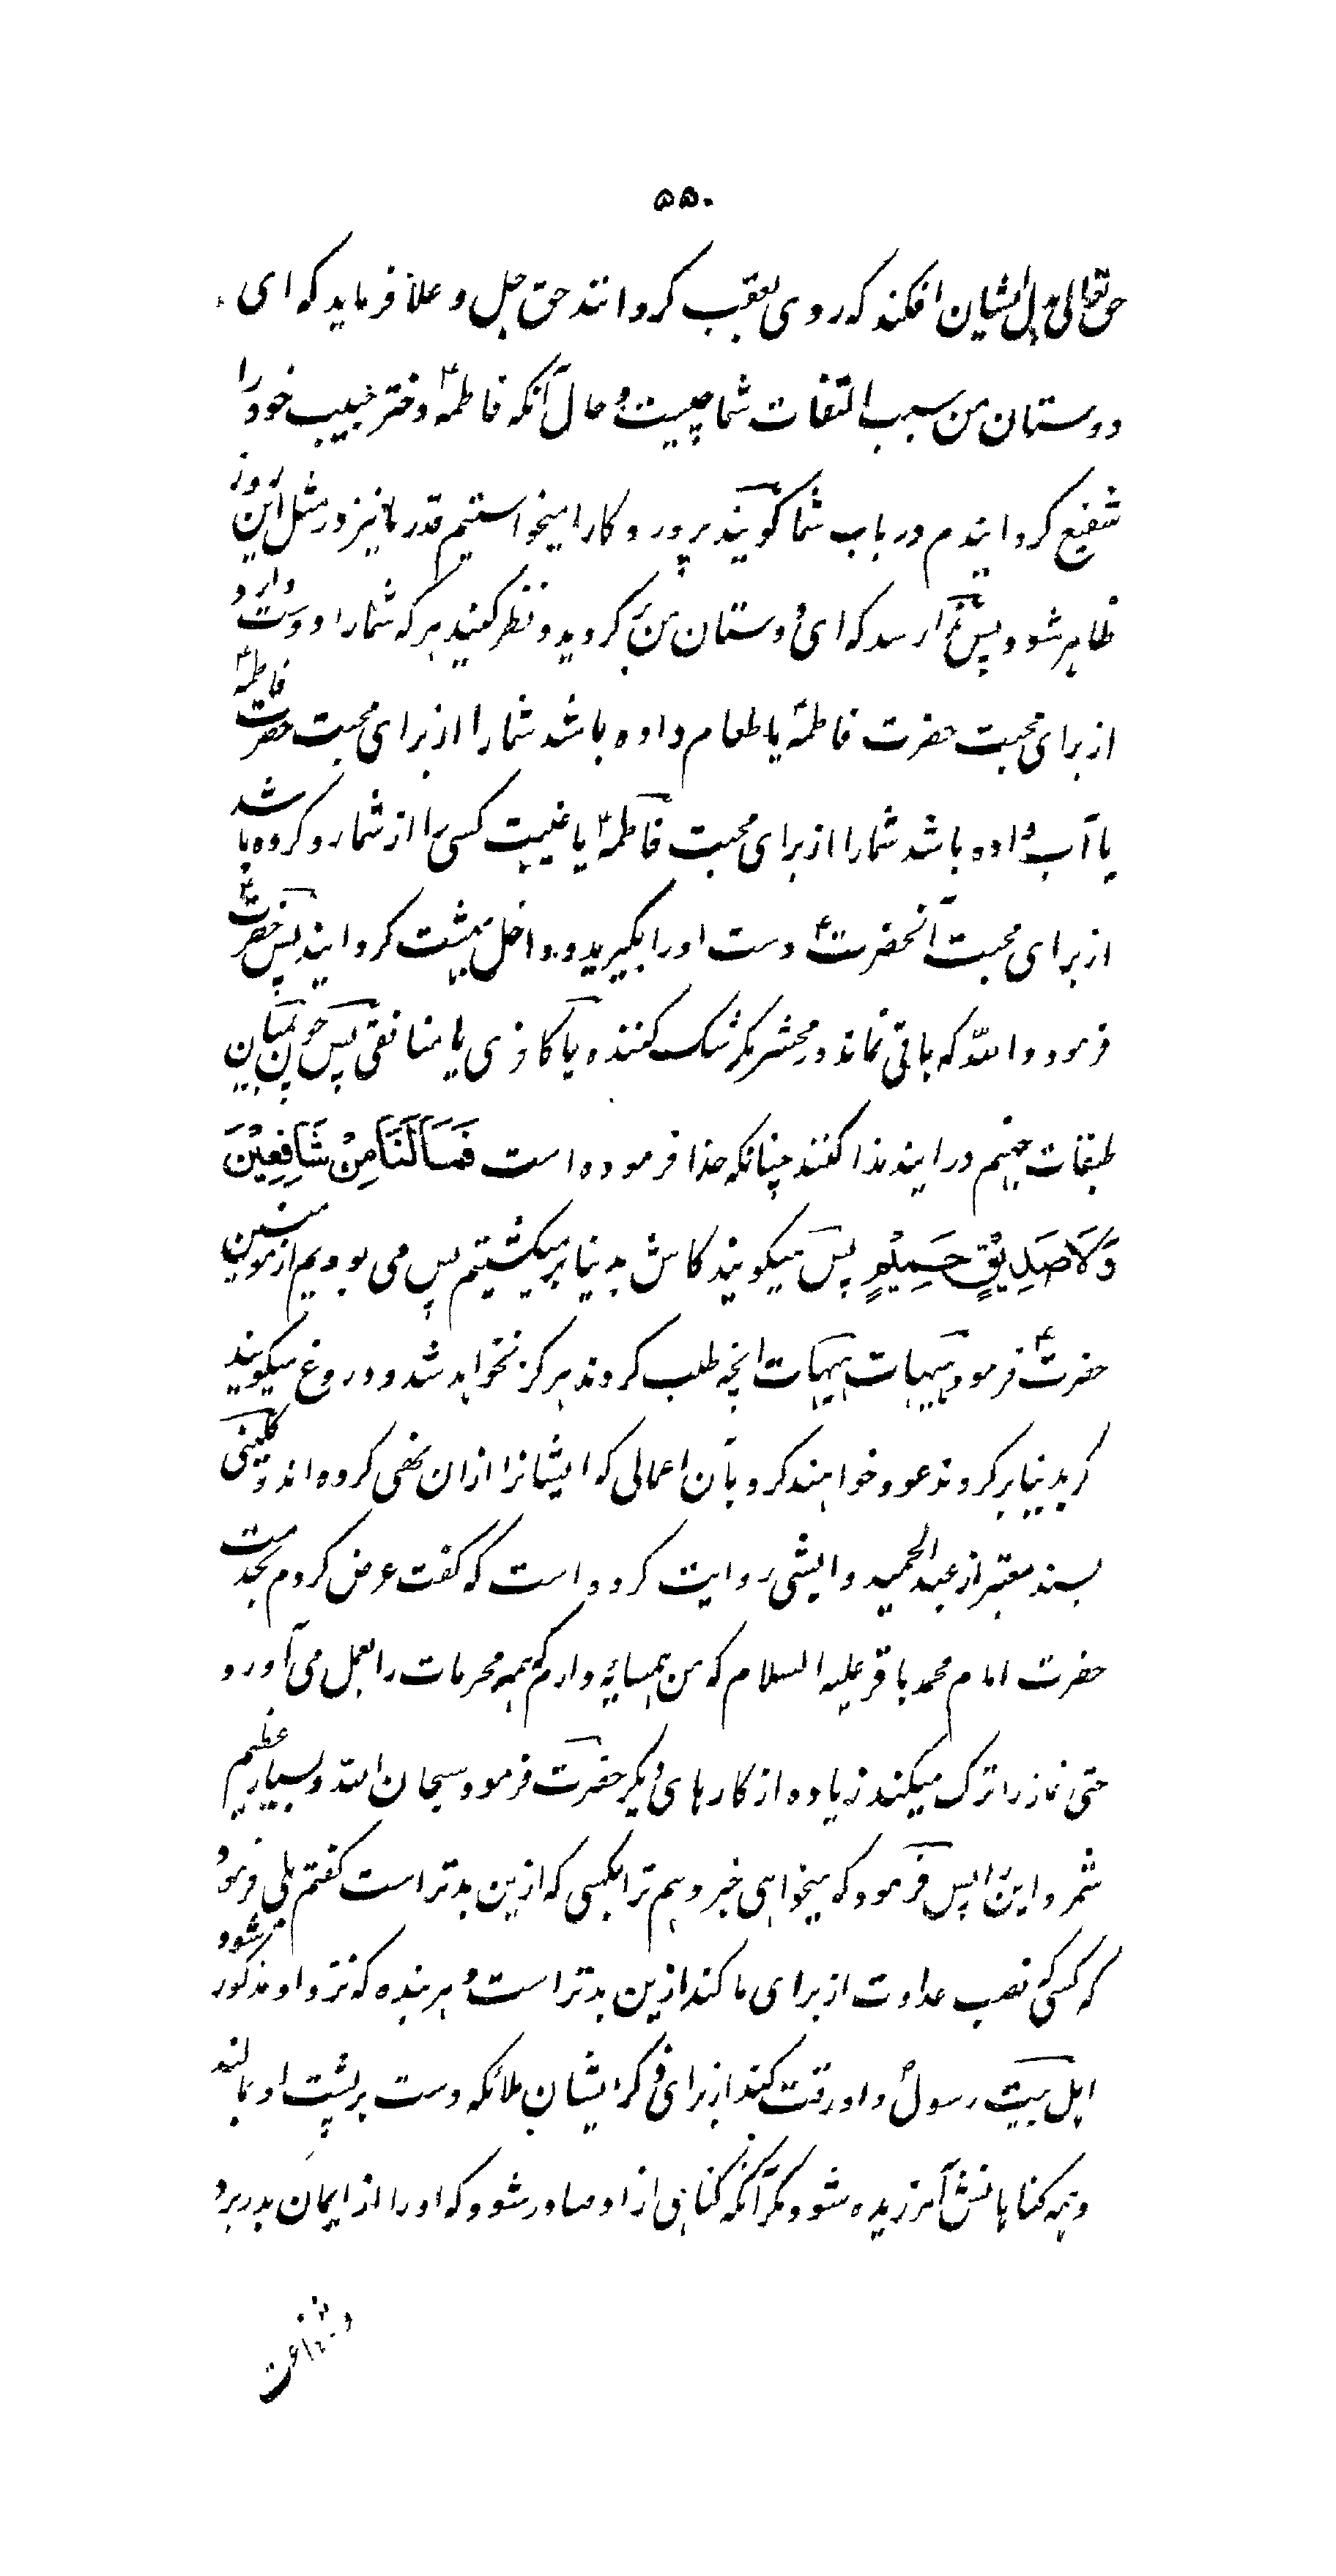 ۵۵۰
حق تعالی بدل ایشان افکند که روی بعقب کردانند حق جل و علا فرماید که ای
دوستان من سبب التفات شما چیست و حال آنکه فاطمهؑ دختر حبیب خود را
شفیع کردانیدم در باب شما کویند پرورد کارا میخواستیم قدر ما نیز در مثل این روز
ظاهر شود پس ندا رسد که ای دوستان من بر کردید و نظر کنید هر که شما را دوست دارد
از برای محبت حضرت فاطمهؑ یا طعام داده باشد شما را از برای محبت حضرت فاطمهؑ
یا آب داده باشد شما را از برای محبت فاطمهؑ یا غیبت کسی را از شما رد کرده باشد
از برای محبت آنحضرتؑ دست او را بگیرید و داخل بهشت کردانید پس حضرتؑ
فرمود والله که باقی نماند در محشر مکر شک کننده یا کافری یا منافقی پس چون بمیان این
طبقات جهنم درایند ندا کنند چنانکه خدا فرموده است فَمَا لَنَا مِنْ شَافِعِیْنَ
وَلَا صَدِیْقٍ حَمِیْمٍ پس میکویند کاش بدنیا بر میکشتیم پس می بودیم از مومنین
حضرتؑ فرمود هیهات هیهات انچه طلب کردند هرکز نخواهد شد و دروغ میکویند
کر بدنیا بر کردند عود خواهند کرد بآن اعمالی که ایشانرا ازان نهی کرده اند و کلینی
بسند معتبر از عبد الحمید وابشی روایت کرده است که کفت عرض کردم بخدمت
حضرت امام محمد باقر علیه السلام که من همسایهٔ دارم که همه محرمات را بعمل می آورد و
حتی نماز را ترک میکند زیاده از کارهای دیکر حضرت فرمود سبحان الله و بسیار عظیم
شمرد این را پس فرمود که میخواهی خبر دهم ترا بکسی که ازین بدتر است کفتم بلی فرمود
که کسی که نصب عداوت از برای ما کند ازین بدتر است و هر بنده که نزد او مذکور شود
اهل بیت رسولؐ و او رقت کند از برای ذکر ایشان ملائکه دست بر پشت او بمالند
و همه کناهانش آمرزیده شود مکر آنکه کناهی از او صادر شود که او را از ایمان بدر برد
و شفاعت